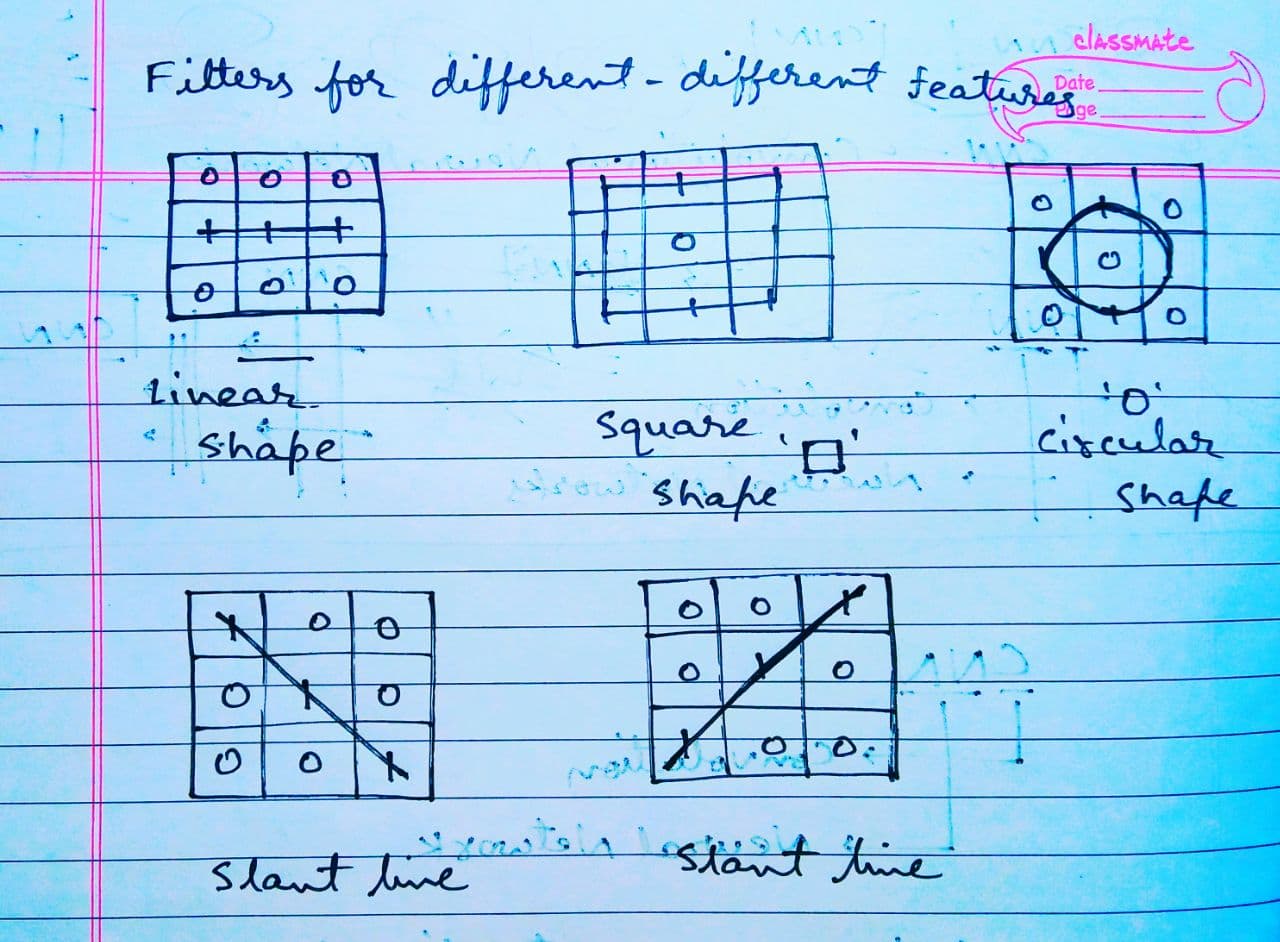 classmate
Date
Page
Filters for different-different features
0 0 0
1 1 1
0 0 0
Linear
Shape
1 1 1
1 0 1
1 1 1
Square '□'
Shape
0 1 0
1 0 1
0 1 0
'O'
Circular
Shape
1 0 0
0 1 0
0 0 1
Slant line
0 0 1
0 1 0
1 0 0
Slant line